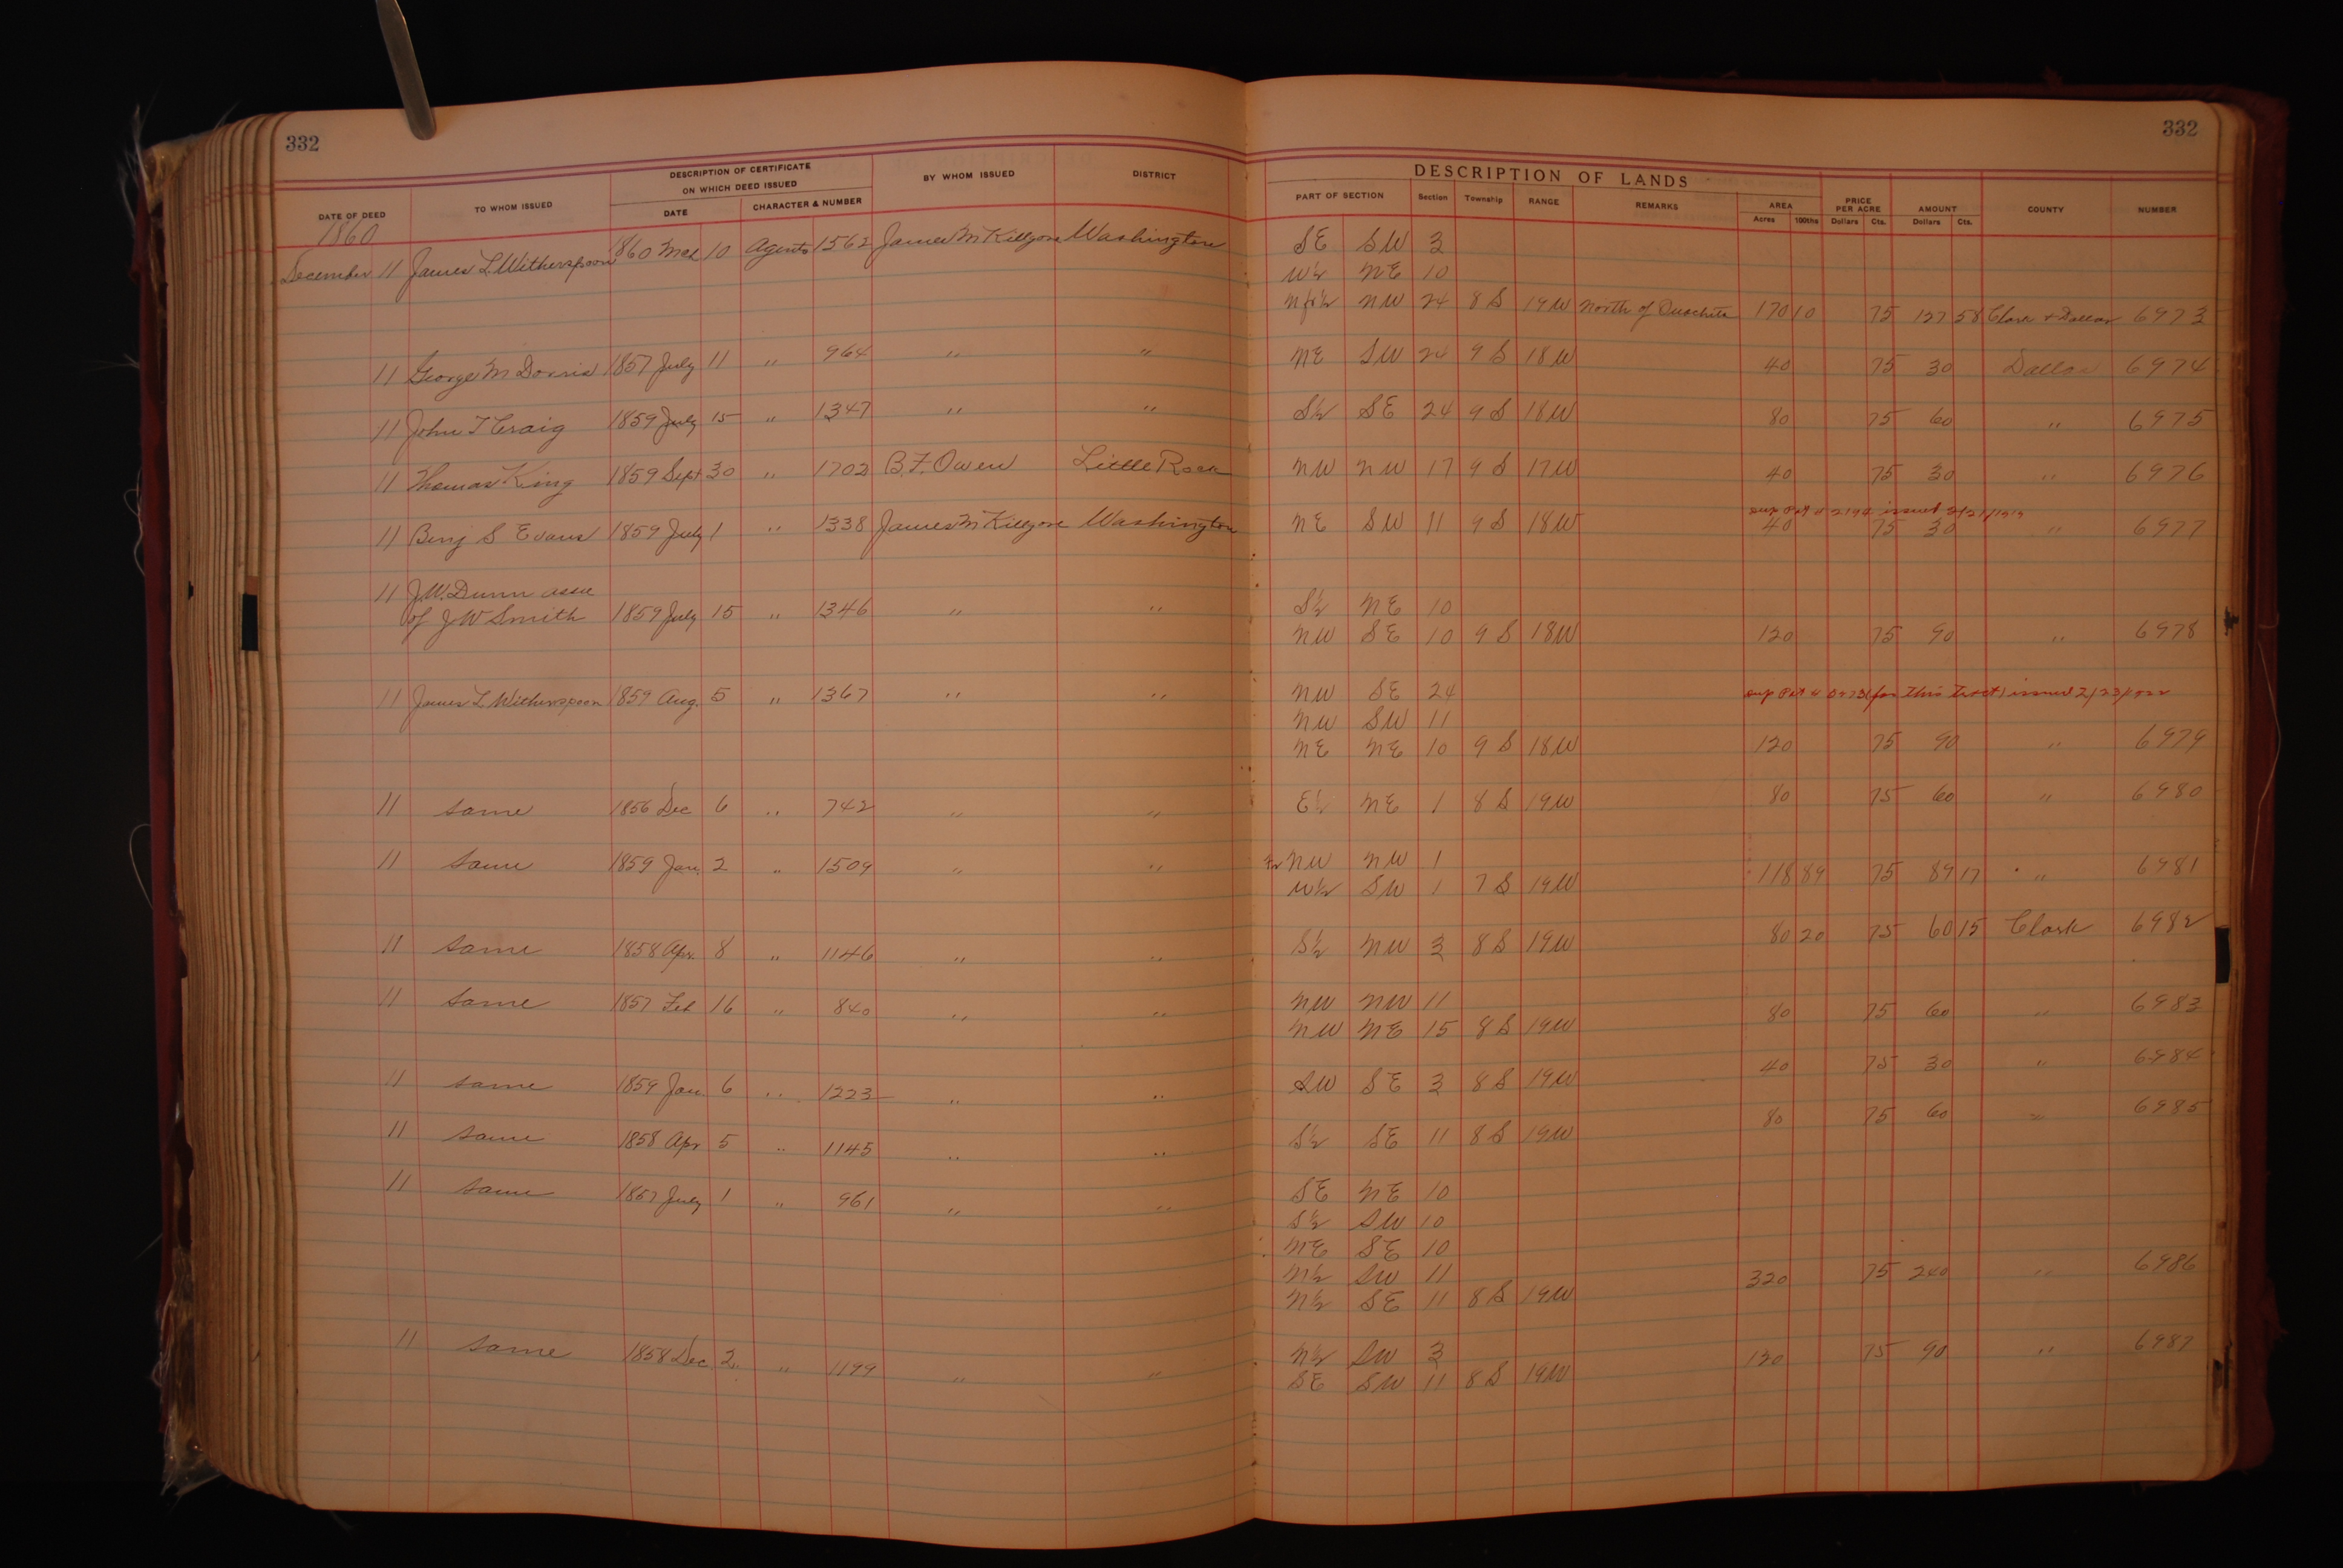 332 332
DESCRIPTION OF CERTIFICATE ON WHICH DEED ISSUED DESCRIPTION OF LANDS
DATE OF DEED TO WHOM ISSUED DATE CHARACTER & NUMBER BY WHOM ISSUED DISTRICT PART OF SECTION Section Township RANGE REMARKS AREA Acres 100ths PRICE PER ACRE Dollars Cts. AMOUNT Dollars Cts. COUNTY NUMBER
1860
December 11 James L. Witherspoon 1860 Mch 10 Agents 1562 James M Killgore Washington SE SW 3
W½ NE 10
N fr ½ NW 24 8 S 19W North of Ouachita 170 10 75 127 58 Clark & Dallas 6973
11 George M Dorris 1857 July 11 " 964 " " NE SW 24 9 S 18W 40 75 30 Dallas 6974
11 John T Craig 1859 July 15 " 1347 " " S½ SE 24 9 S 18W 80 75 60 " 6975
11 Thomas King 1859 Sept 30 " 1702 B.F. Owen Little Rock NW NW 17 9 S 17W 40 75 30 " 6976
issued
11 Benj S Evans 1859 July 1 " 1338 James M Killgore Washington NE SW 11 9 S 18W 40 75 30 " 6977
11 J.W. Dunn assee
of J W Smith 1859 July 15 " 1346 " " S½ NE 10
NW SE 10 9 S 18W 120 75 90 " 6978
11 James L Witherspoon 1859 Aug. 5 " 1367 " " NW SE 24 (for this tract) issued
NW SW 11
NE NE 10 9 S 18W 120 75 90 " 6979
11 same 1856 Dec 6 " 742 " " E½ NE 1 8 S 19W 80 75 60 " 6980
11 same 1859 Jan. 2 " 1509 " " fr NW NW 1
W½ SW 1 7 S 19W 118 89 75 89 17 " 6981
11 same 1858 Apr. 8 " 1146 " " S½ NW 3 8 S 19W 80 20 75 60 15 Clark 6982
11 same 1857 Feb 16 " 840 " " NW NW 11
NW NE 15 8 S 19W 80 75 60 " 6983
11 same 1859 Jan. 6 " 1223 " " SW SE 3 8 S 19W 40 75 30 " 6984
11 same 1858 Apr 5 " 1145 " " S½ SE 11 8 S 19W 80 75 60 " 6985
11 same 1857 July 1 " 961 " " SE NE 10
S½ SW 10
NE SE 10
N½ SW 11
N½ SE 11 8 S 19W 320 75 240 " 6986
11 same 1858 Dec. 2 " 1199 " " N½ SW 3
SE SW 11 8 S 19W 120 75 90 " 6987